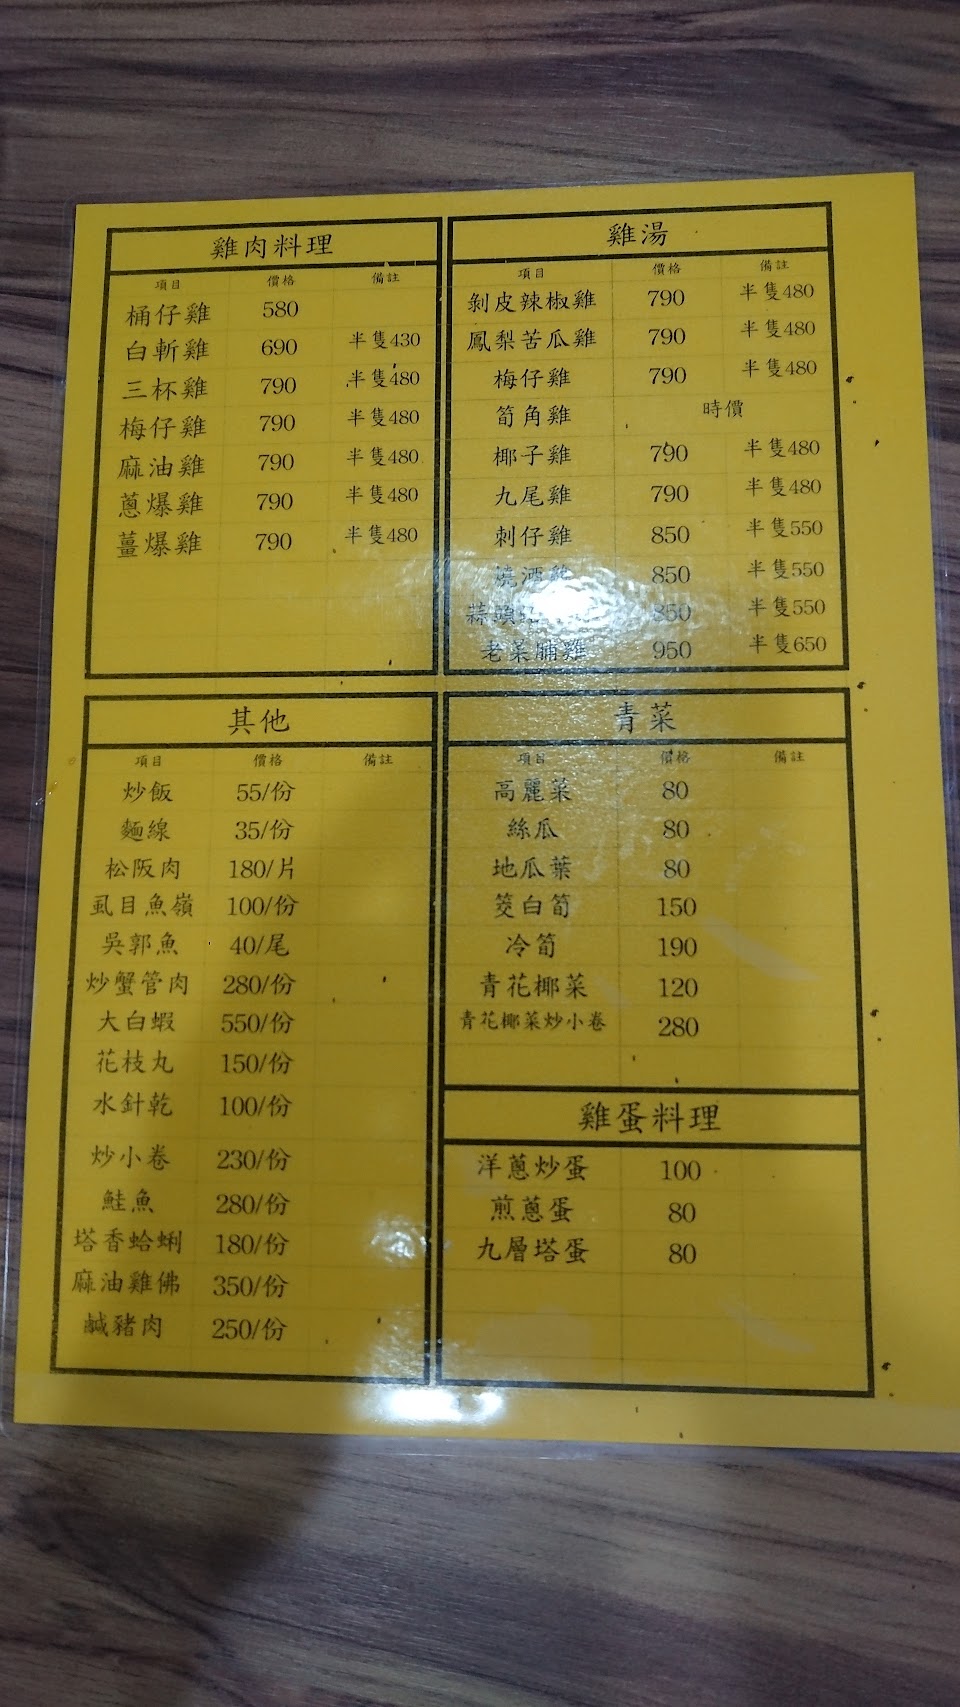 雞肉料理
項目 價格 備註
桶仔雞 580
白斬雞 690 半隻430
三杯雞 790 半隻480
梅仔雞 790 半隻480
麻油雞 790 半隻480
蔥爆雞 790 半隻480
薑爆雞 790 半隻480
雞湯
項目 價格 備註
剝皮辣椒雞 790 半隻480
鳳梨苦瓜雞 790 半隻480
梅仔雞 790 半隻480
筍角雞 時價
椰子雞 790 半隻480
九尾雞 790 半隻480
刺仔雞 850 半隻550
燒酒雞 850 半隻550
蒜頭 850 半隻550
老菜脯雞 950 半隻650
其他
項目 價格 備註
炒飯 55/份
麵線 35/份
松阪肉 180/片
虱目魚嶺 100/份
吳郭魚 40/尾
炒蟹管肉 280/份
大白蝦 550/份
花枝丸 150/份
水針乾 100/份
炒小卷 230/份
鮭魚 280/份
塔香蛤蜊 180/份
麻油雞佛 350/份
鹹豬肉 250/份
青菜
項目 價格 備註
高麗菜 80
絲瓜 80
地瓜葉 80
筊白筍 150
冷筍 190
青花椰菜 120
青花椰菜炒小卷 280
雞蛋料理
洋蔥炒蛋 100
煎蔥蛋 80
九層塔蛋 80